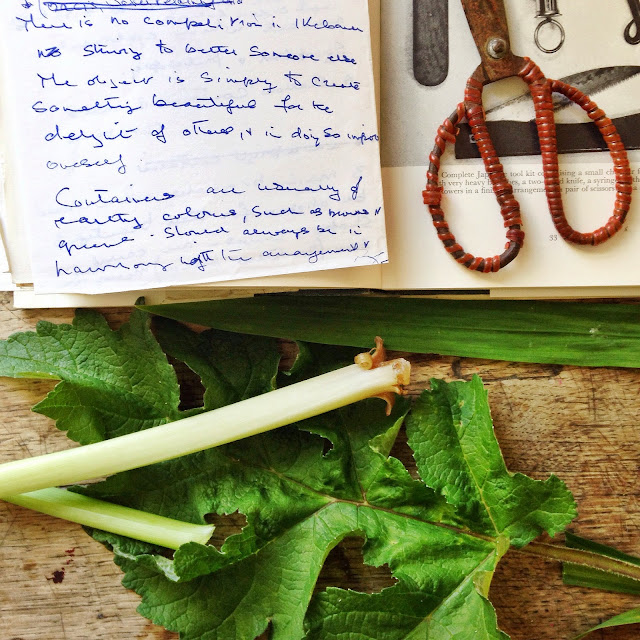 There is no competition in Ikebana
no striving to better someone else
The object is simply to create
something beautiful for the
delight of others, & in doing so improve
oneself.
Containers are usually of
earthy colours, such as browns &
greens. Should always be in
harmony with the arrangement &
Complete Japanese tool kit containing a small
with very heavy, a two-edged knife, a syringe
flowers in a arrangement, pair of scissors
33